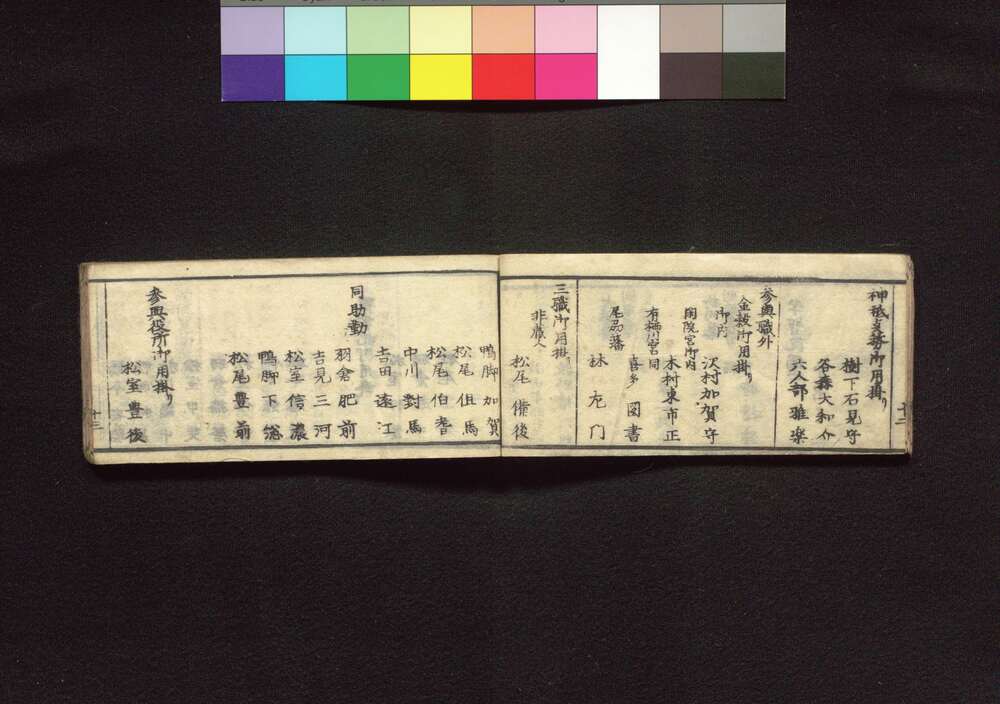 神祇事務御用掛り
樹下石見守
谷森大和介
六人部雅楽
参與職外
金穀御用掛り
御内
沢村加賀守
閑院宮御内
木村東市正
有栖川宮同
喜多図書
尾張藩
林左門
三職御用掛り
非蔵人
松尾備後
鴨脚加賀
松尾但馬
松尾伯耆
中川對馬
吉田遠江
同助勤
羽倉肥前
吉見三河
松室信濃
鴨脚下総
松尾豊前
参與役所御用掛り
松室豊後
十三